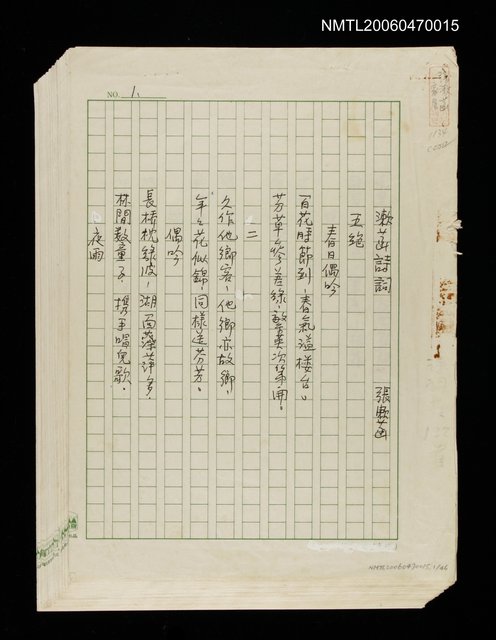 NMTL20060470015
NO. 1
漱菡詩詞 張漱菡
五絕
春日偶吟
百花時節到，春氣溢樓台。
芳草參差綠，敲英次第開。
二
久作他鄉客，他鄉亦故鄉，
年年花似錦，同樣送芬芳。
偶吟
長橋枕綠波，湖面藻萍多，
林間數童子，携手唱兒歌。
夜雨
NMTL20060470015, 1/46